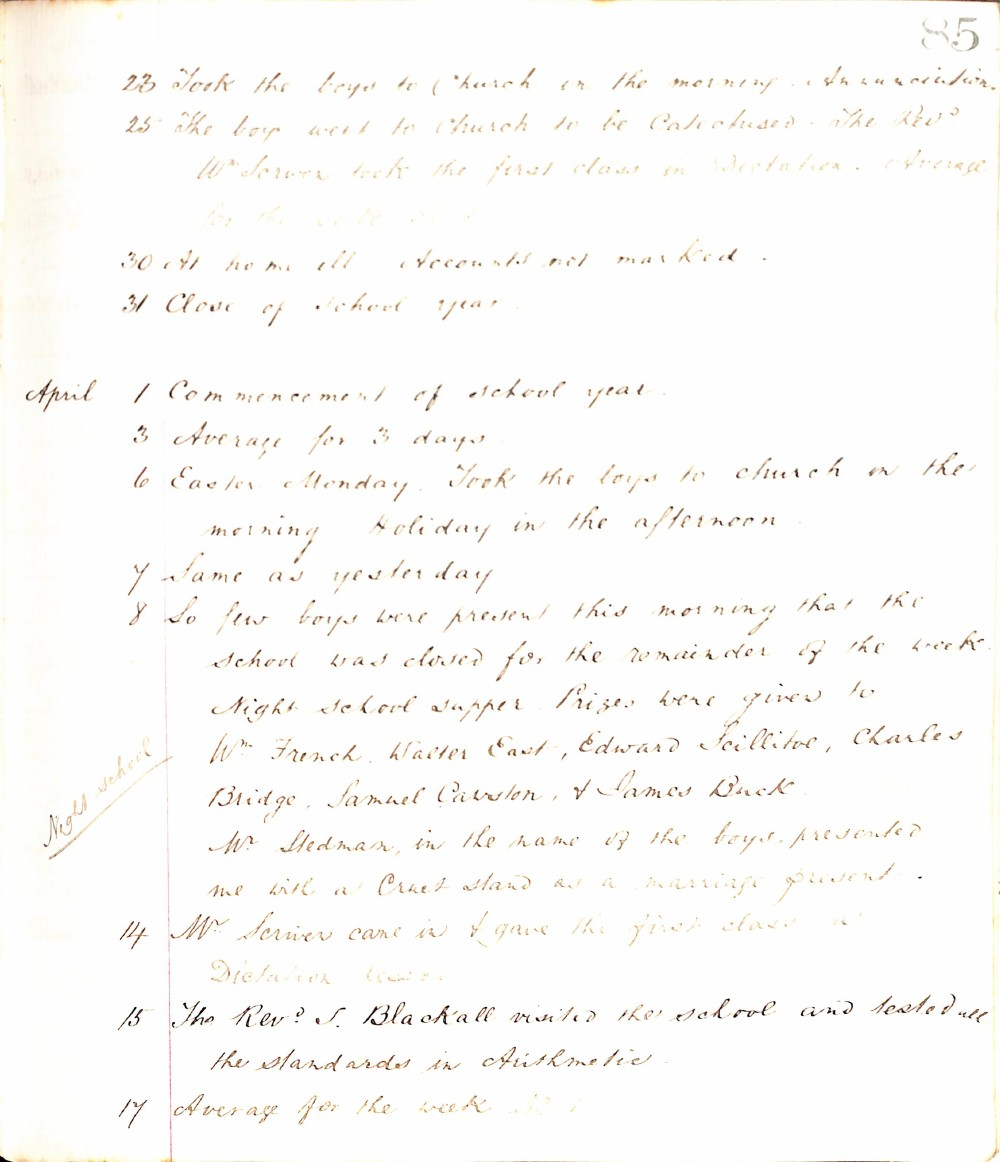 85
23 Took the boys to Church in the morning. Annunciation.
25 The boys went to Church to be Catechised. The Revd
Wm Scriven took the first class in Dictation. Average
for the week
30 At home ill Accounts not marked.
31 Close of school year.
April 1 Commencement of school year.
3 Average for 3 days
6 Easter Monday. Took the boys to church in the
morning Holiday in the afternoon.
7 Same as yesterday
8 So few boys were present this morning that the
school was closed for the remainder of the week.
Night school supper. Prizes were given to
Wm French, Walter East, Edward Scillitoe, Charles
Bridge, Samuel & James Buck.
Night school
Mr Stedman, in the name of the boys, presented
me with a Cruet stand as a marriage present.
14 Mr Scriven came in & gave the first class a
Dictation lesson.
15 The Revd S. Blackall visited the school and tested all
the standards in Arithmetic.
17 Average for the week